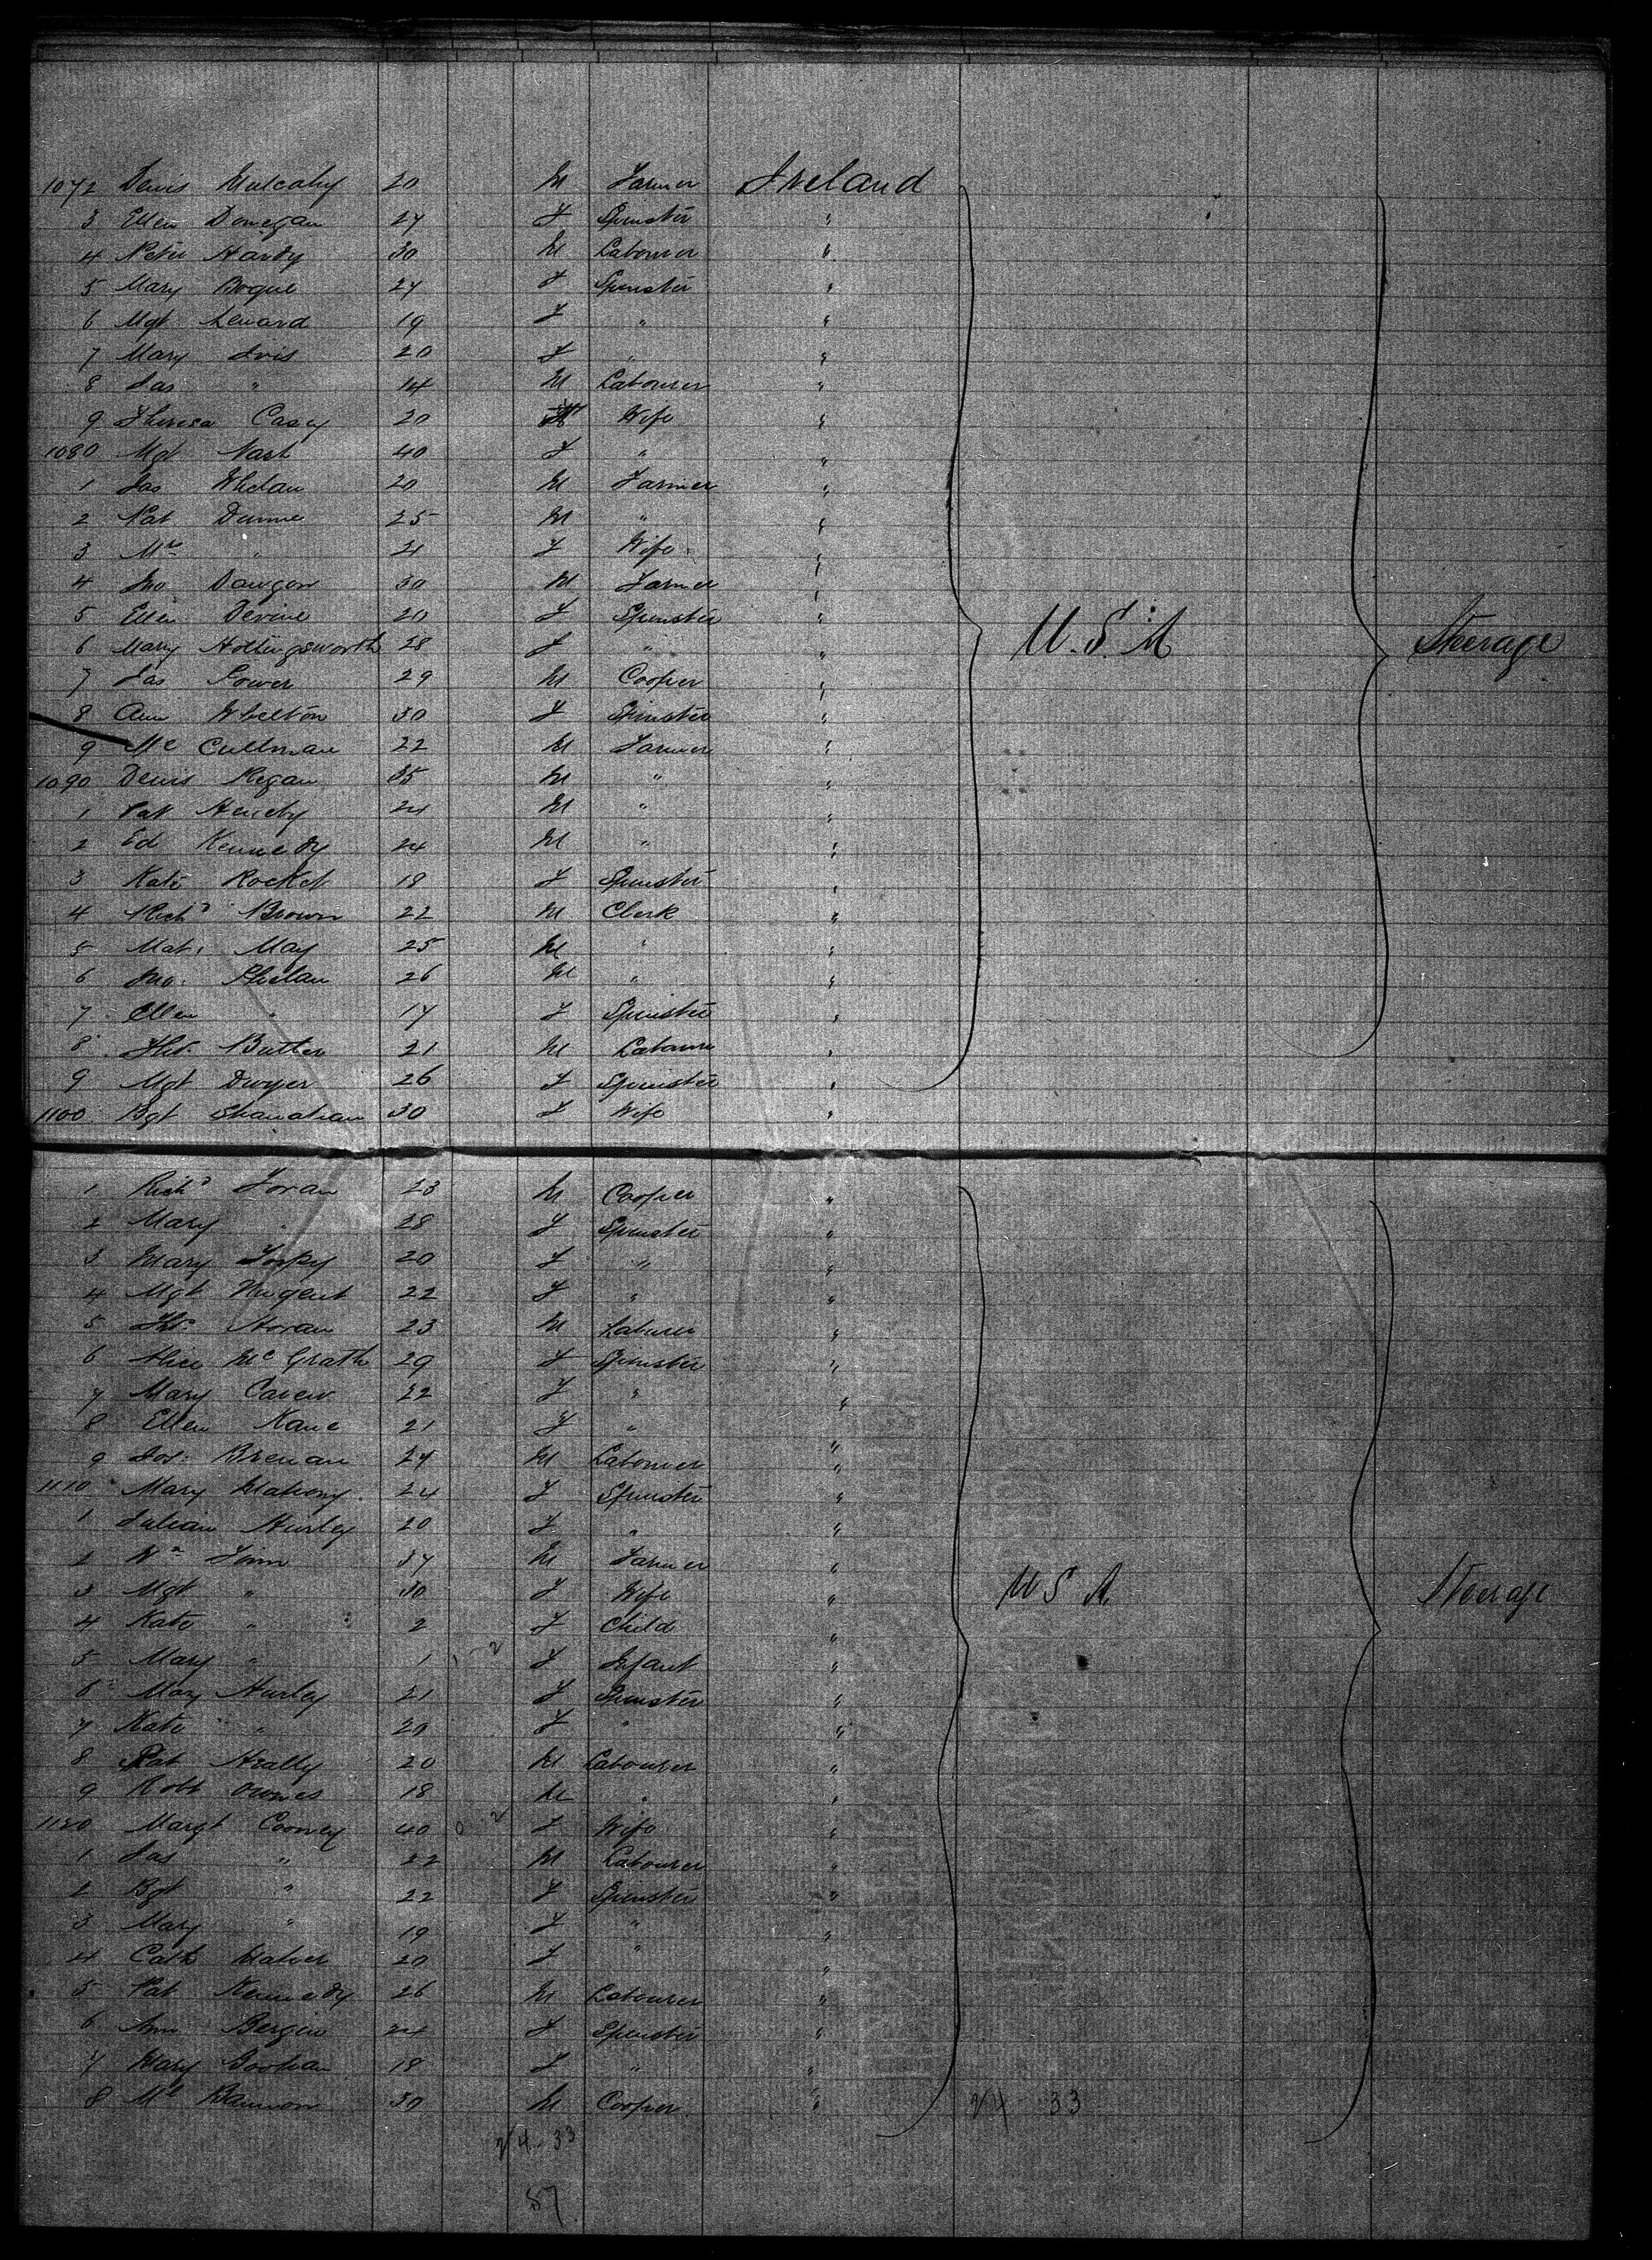 1072 Denis Mulcahy 20 M Farmer Ireland
3 Ellen Donegan 27 F Spinster "
4 Peter Hardy 30 M Labourer "
5 Mary Bogue 27 F Spinster "
6 Mgt Lenard 19 F " "
7 Mary Ivis 20 F " "
8 Jas " 14 M Labourer "
9 Theresa Casey 20 Wife "
1080 Mgt Nash 40 F " "
1 Jas Whelan 20 M Farmer "
2 Pat Dunne 25 M " "
3 Mrs " 21 F Wife "
4 Jno Dawgon 30 M Farmer "
5 Ellen Devine 20 F Spinster "
6 Mary Hollingsworth 28 F " " U.S.A Steerage
7 Jas Power 29 M Cooper "
8 Ann Whelton 30 F Spinster "
9 Ml Cullman 22 M Farmer "
1090 Denis Regan 35 M " "
1 Pat Heneby 24 M " "
2 Ed Kennedy 24 M " "
3 Kate Rocket 18 F Spinster "
4 Richd Brown 22 M Clerk "
5 Mat. May 25 M " "
6 Jno. Phelan 26 M " "
7 Ellen " 17 F Spinster "
8 Thos. Butler 21 M Labourer "
9 Mgt Dwyer 26 F Spinster "
1100 Bgt Shanahan 30 F Wife "
1 Richd Foran 23 M Cooper "
2 Mary " 28 F Spinster "
3 Mary 20 F " "
4 Mgt Nugent 22 F " "
5 Thos Horan 23 M Labourer "
6 Alice McGrath 29 F Spinster "
7 Mary Carew 22 F " "
8 Ellen Kane 21 F " "
9 Jos: Brenan 27 M Labourer "
1110 Mary Mahony 24 F Spinster "
1 Julian Hurley 20 F " "
2 Wm 37 M Farmer "
3 Mgt " 30 F Wife " U S A Steerage
4 Kate " 2 F Child "
5 Mary " 1 F Infant "
6 Mary Hurley 21 F Spinster "
7 Kate " 20 F " "
8 Pat Heally 20 M Labourer "
9 Robt 18 M " "
1120 Margt Cooney 40 F Wife "
1 Jas " 22 M Labourer "
2 Bgt " 22 F Spinster "
3 Mary " 19 F " "
4 Cath Maher 20 F " "
5 Pat Kennedy 26 M Labourer "
6 Ann Bergin 24 F Spinster "
7 Mary 18 F " "
8 Ml Bannon 30 M Cooper " 24-33
24-33
57